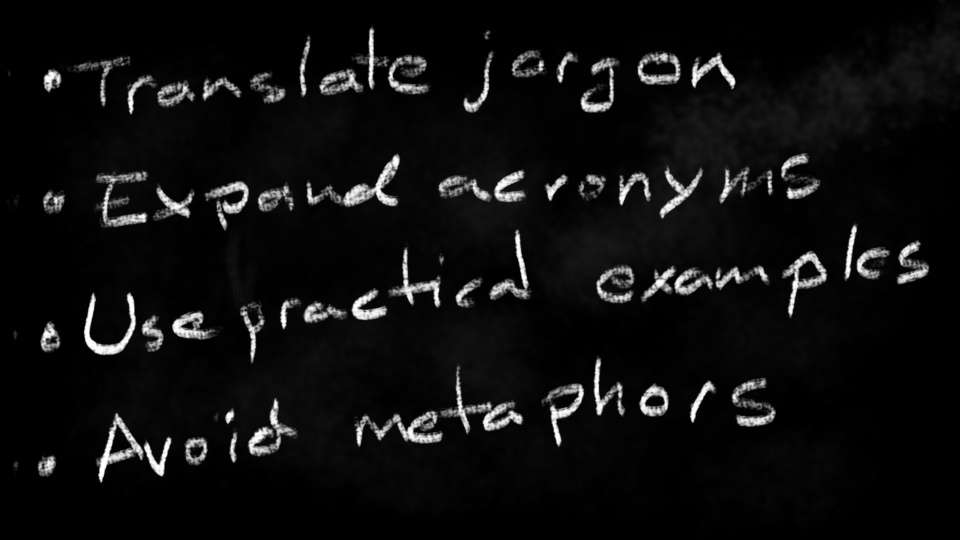 • Translate jargon
• Expand acronyms
• Use practical examples
• Avoid metaphors